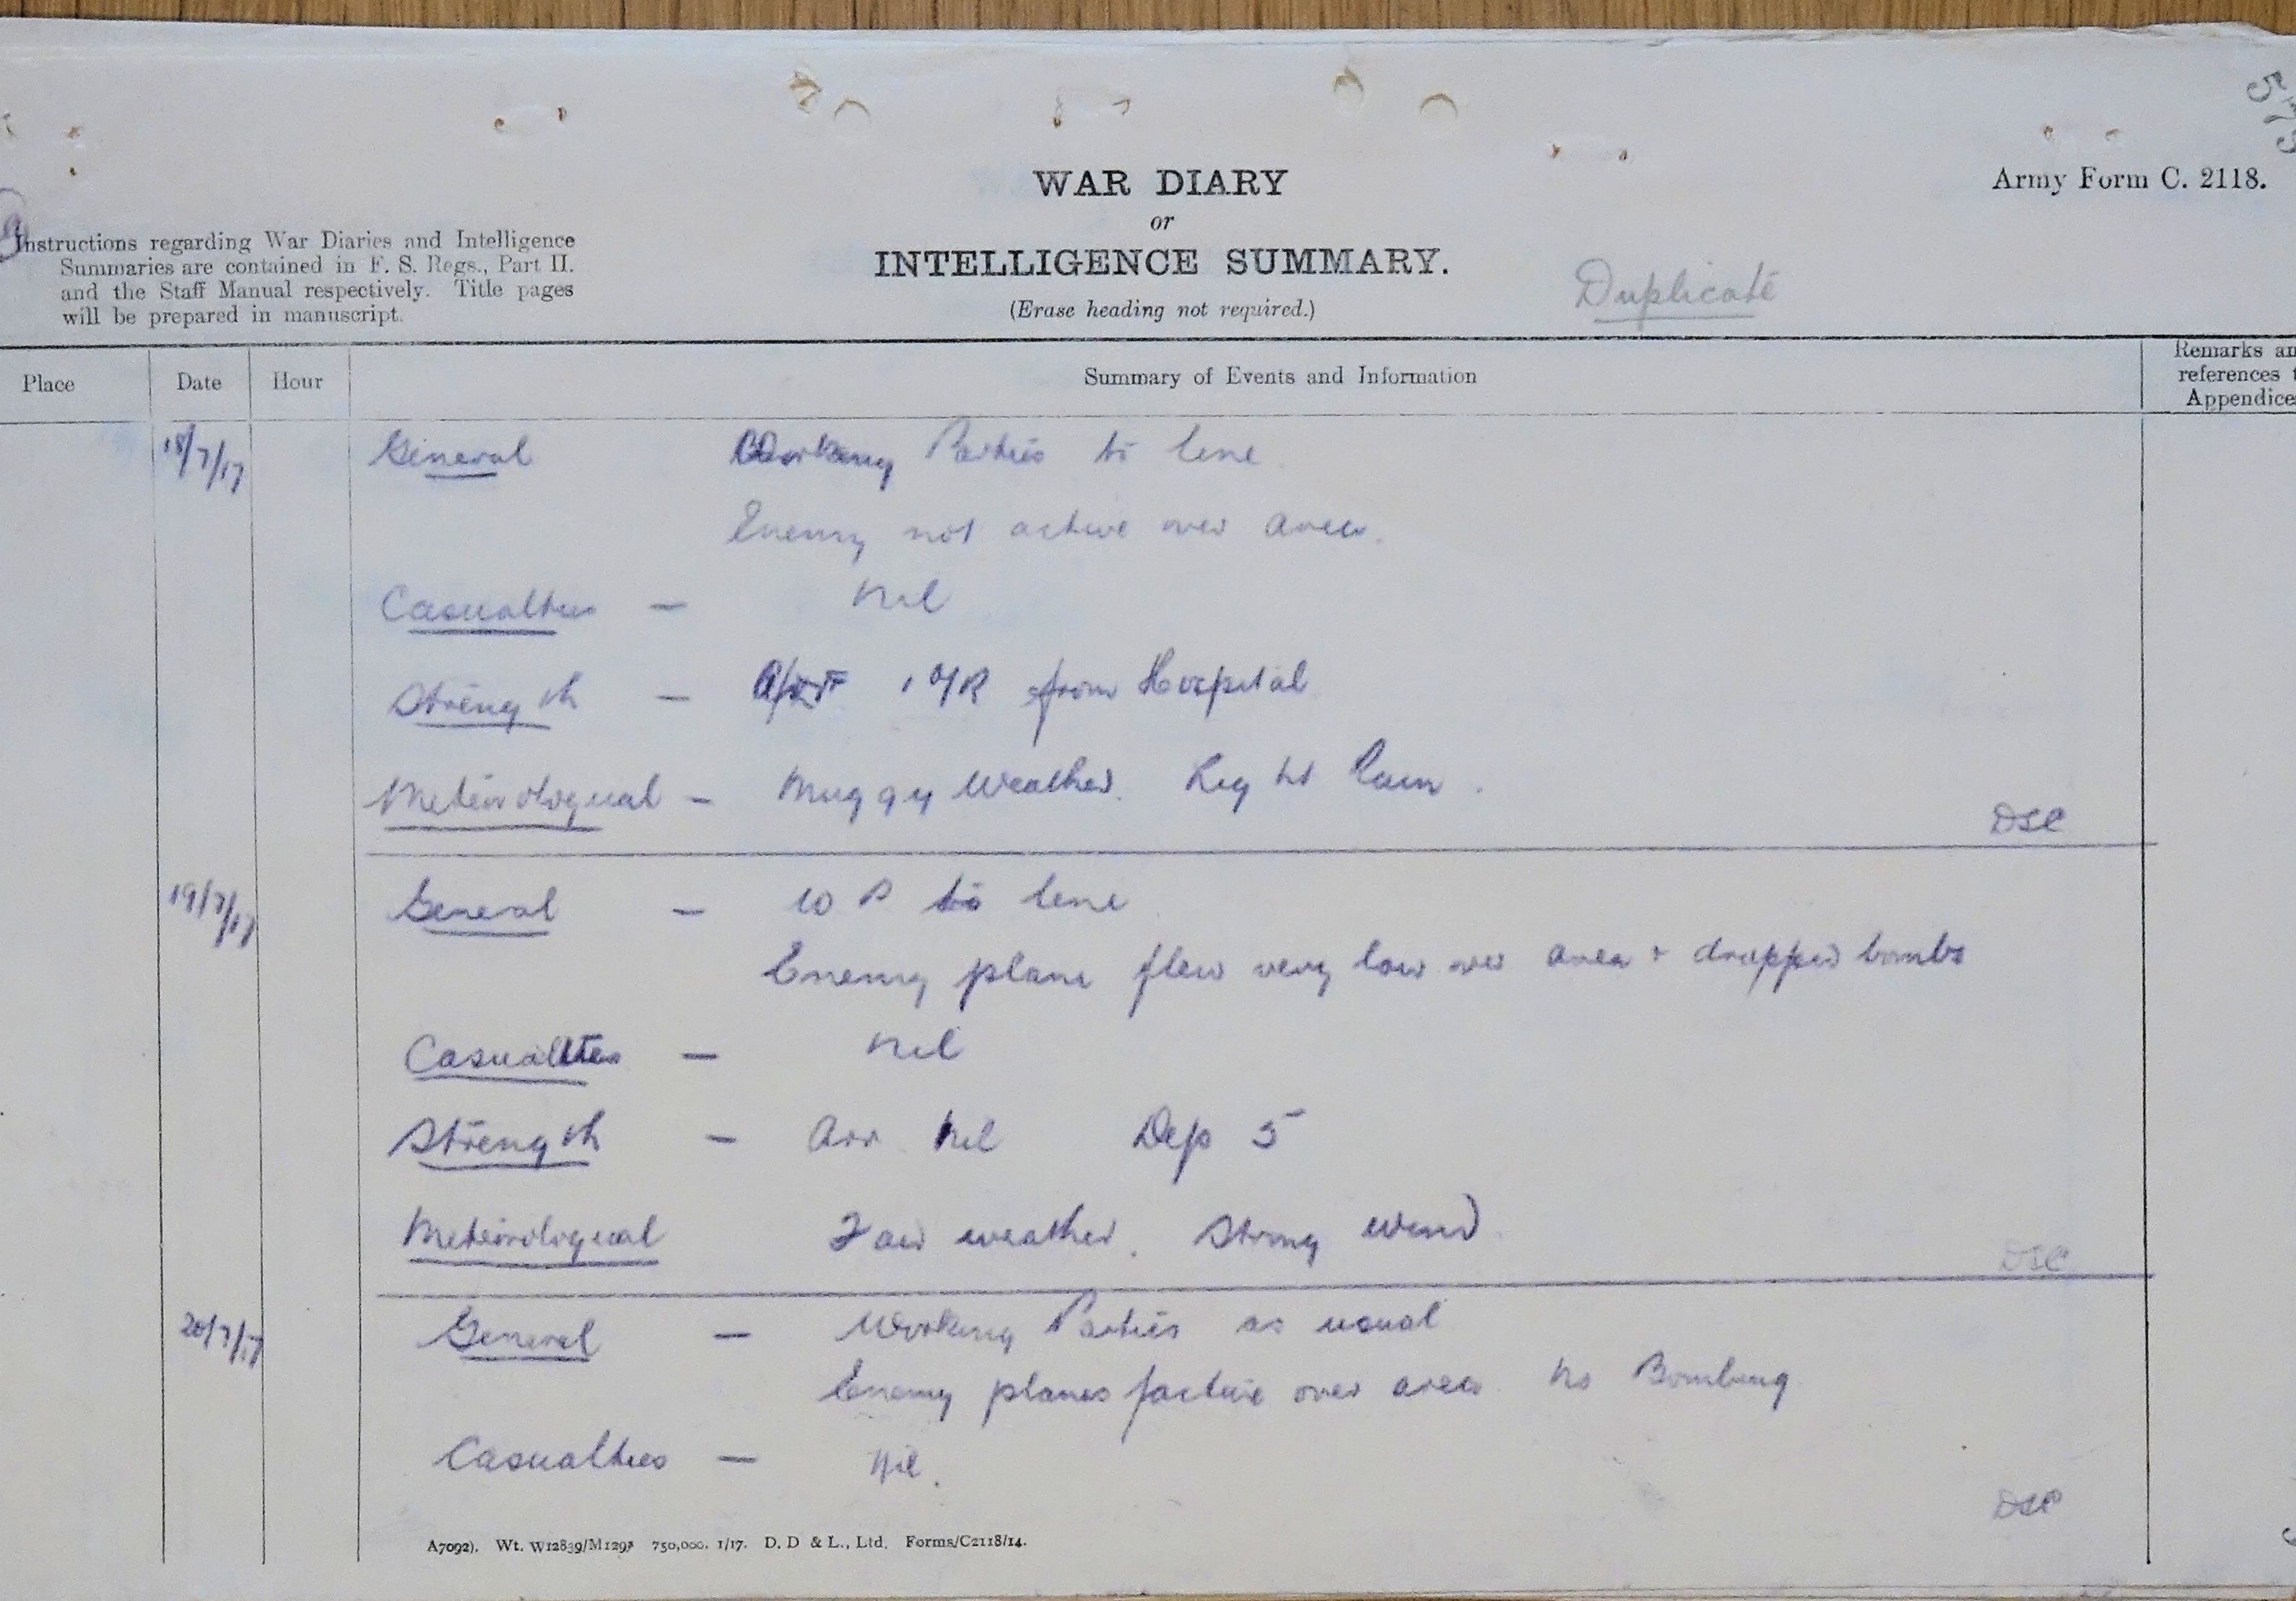 WAR DIARY
or
INTELLIGENCE SUMMARY.
(Erase heading not required.)
Army Form C. 2118.
Duplicate
Instructions regarding War Diaries and Intelligence
Summaries are contained in F. S. Regs., Part II.
and the Staff Manual respectively. Title pages
will be prepared in manuscript.
Place Date Hour Summary of Events and Information
Remarks an
references t
Appendice
18/7/17 General Working Parties to line
Enemy not active over area.
Casualties — Nil
Strength — 1 O/R from Hospital
Meteorological — Muggy Weather. Light Rain.
DSC
19/7/17 General — W P to line
Enemy plane flew very low over area + dropped bombs
Casualties — Nil
Strength — Arr Nil Dep 5
Meteorological Fair weather. Strong wind
DSC
20/7/17 General — Working Parties as usual
Enemy planes active over area No Bombing
Casualties — Nil.
DSC
A7092). Wt. W12839/M1293 750,000. 1/17. D. D & L., Ltd. Forms/C2118/14.